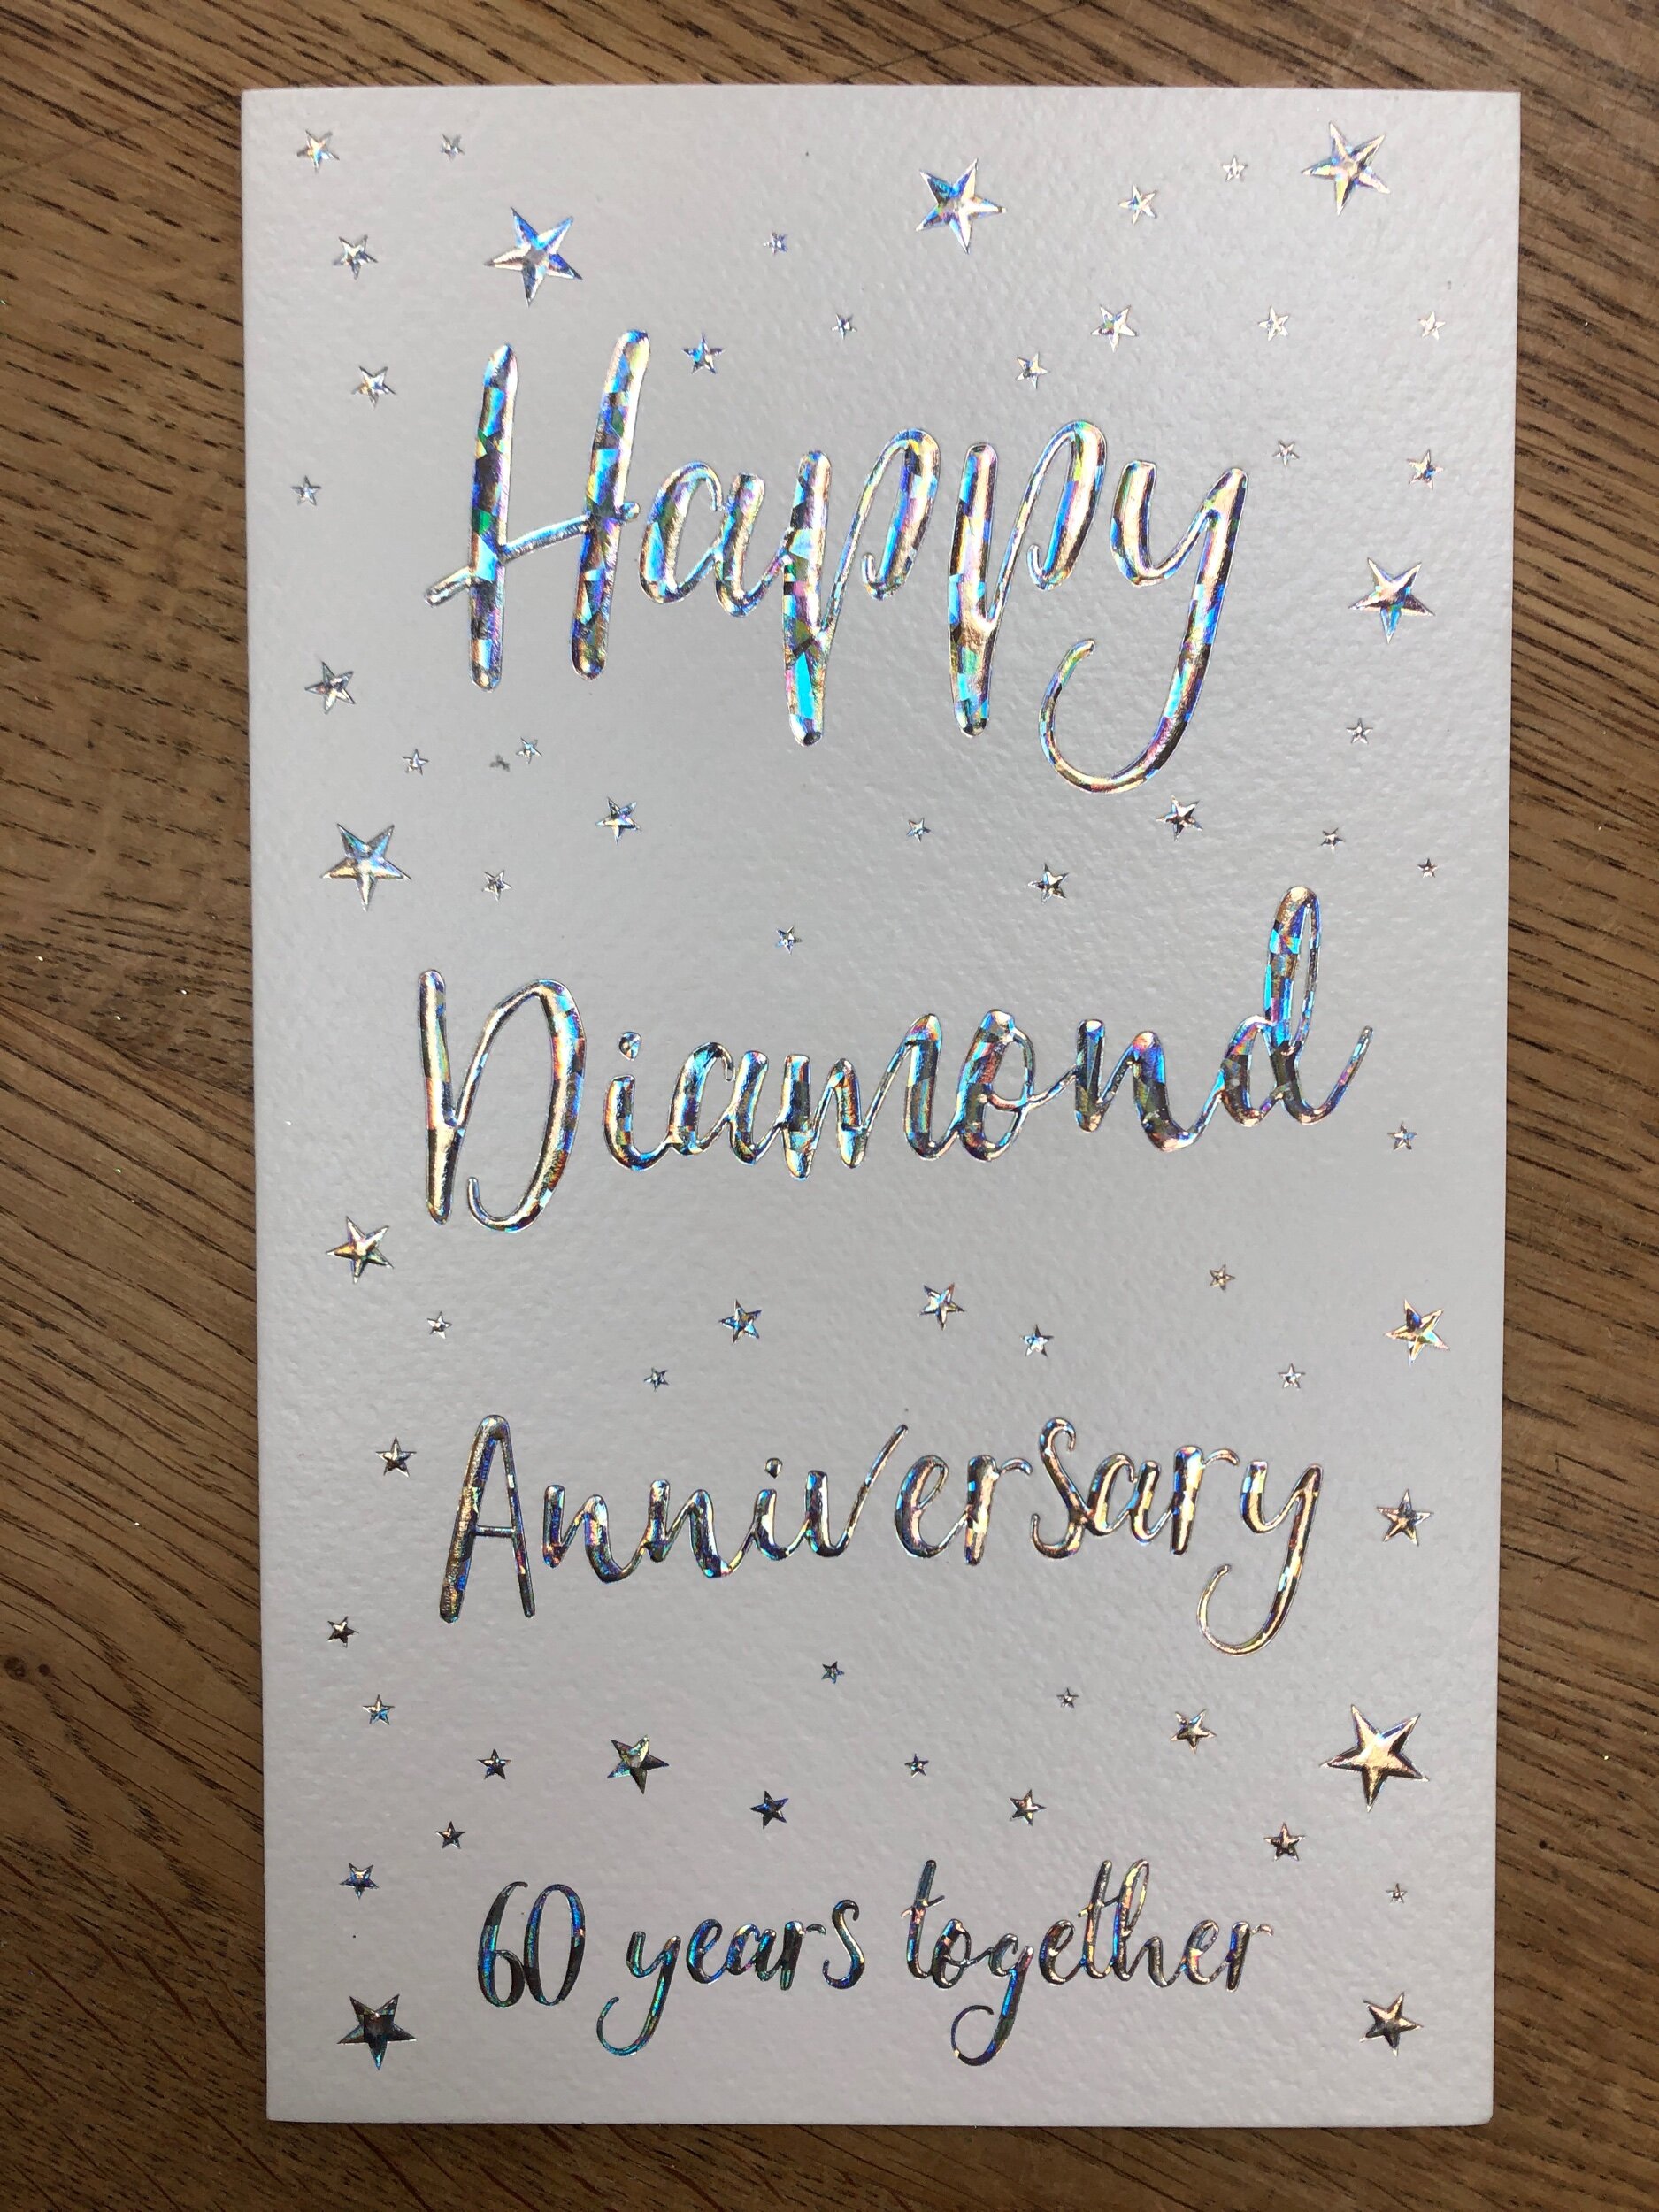 Happy
Diamond
Anniversary
60 years together